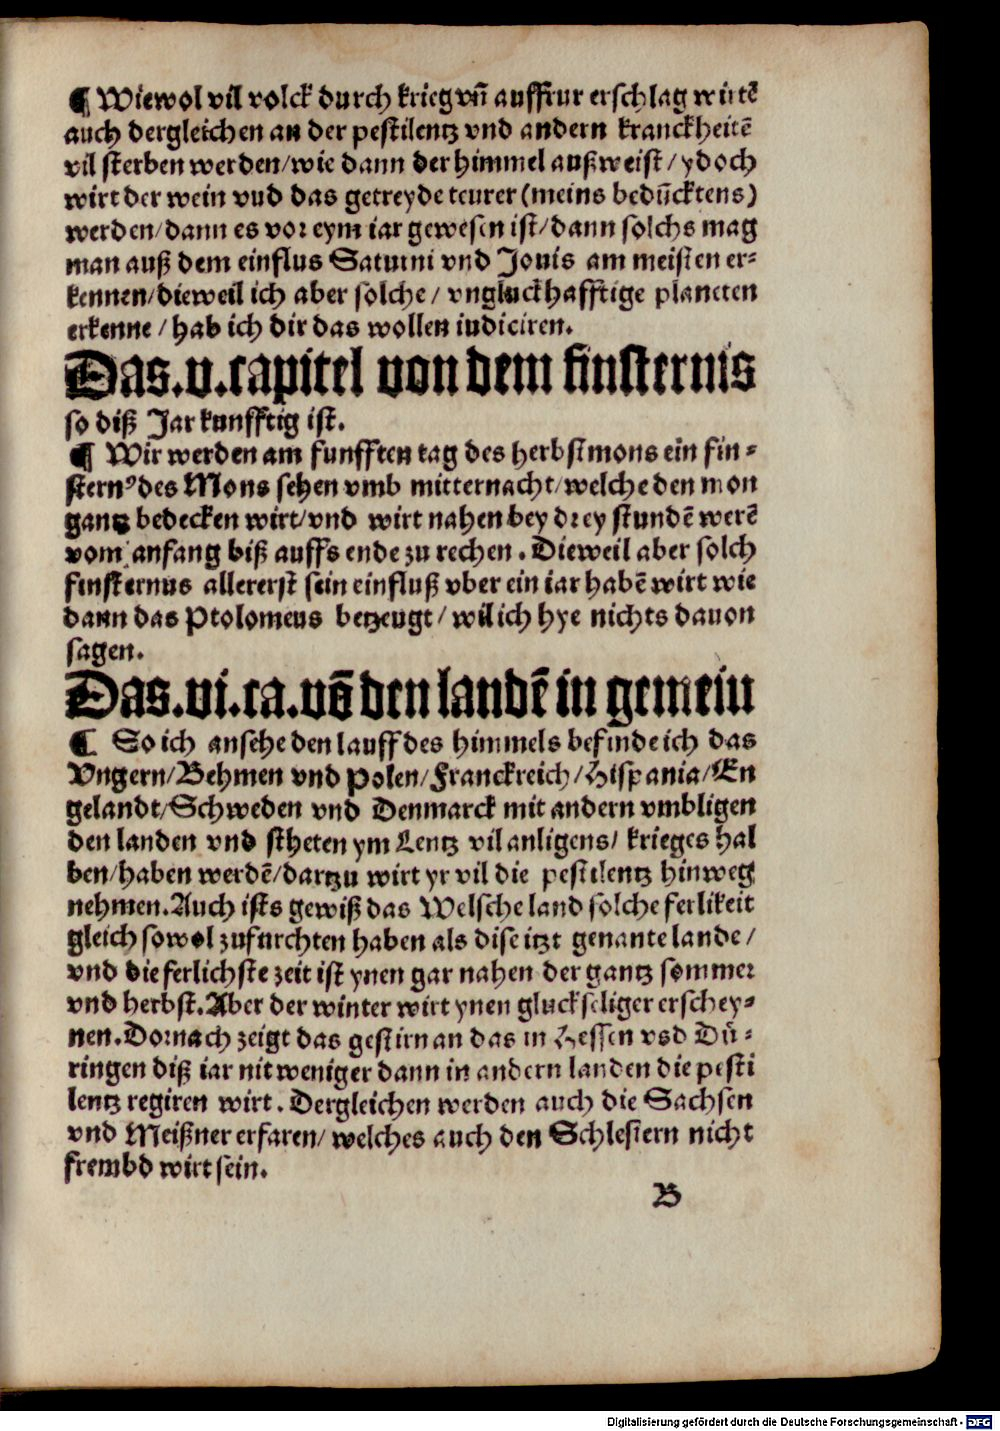 ¶ Wiewol vil volck durch krieg vñ auffrur erschlag wirtẽ
auch dergleichen an der pestilentz vnd andern kranckheitẽ
vil sterben werden/wie dann der himmel außweist/ydoch
wirt der wein vnd das getreyde teurer (meins bedũcktens)
werden/dann es vor eym iar gewesen ist/dann solchs mag
man auß dem einflus Saturni vnd Jouis am meisten er⸗
kennen/dieweil ich aber solche/ vngluckhafftige planeten
erkenne/hab ich dir das wollen iudiciren.
Das.v.capitel von dem finsternis
so diß Jar kunfftig ist.
¶ Wir werden am funfften tag des herbstmons ein fin⸗
sternꝰ des Mons sehen vmb mitternacht/welche den mon
gantz bedecken wirt/vnd wirt nahen bey drey stundẽ werẽ
vom anfang biß auffs ende zu rechen. Dieweil aber solch
finsternus allererst sein einfluß vber ein iar habẽ wirt wie
dann das Ptolomeus betzeugt/wil ich hye nichts dauon
sagen.
Das.vi.ca.võ den landẽ in gemein
¶ So ich ansehe den lauff des himmels befinde ich das
Vngern/Behmen vnd Polen/Franckreich/Hispania/En
gelandt/Schweden vnd Denmarck mit andern vmbligen
den landen vnd stheten ym Lentz vil anligens/ krieges hal
ben/haben werdẽ/dartzu wirt yr vil die pestilentz hinweg
nehmen.Auch ists gewiß das Welsche land solche ferlikeit
gleich sowol zufurchten haben als dise itzt genante lande/
vnd die ferlichste zeit ist ynen gar nahen der gantz sommer
vnd herbst.Aber der winter wirt ynen gluckseliger erschey⸗
nen.Dornach zeigt das gestirn an das in Hessen vnd Dü⸗
ringen diß iar nit weniger dann in andern landen die pesti
lentz regiren wirt. Dergleichen werden auch die Sachsen
vnd Meißner erfaren/welches auch den Schlesiern nicht
frembd wirt sein.
B
Digitalisierung gefördert durch die Deutsche Forschungsgemeinschaft - DFG